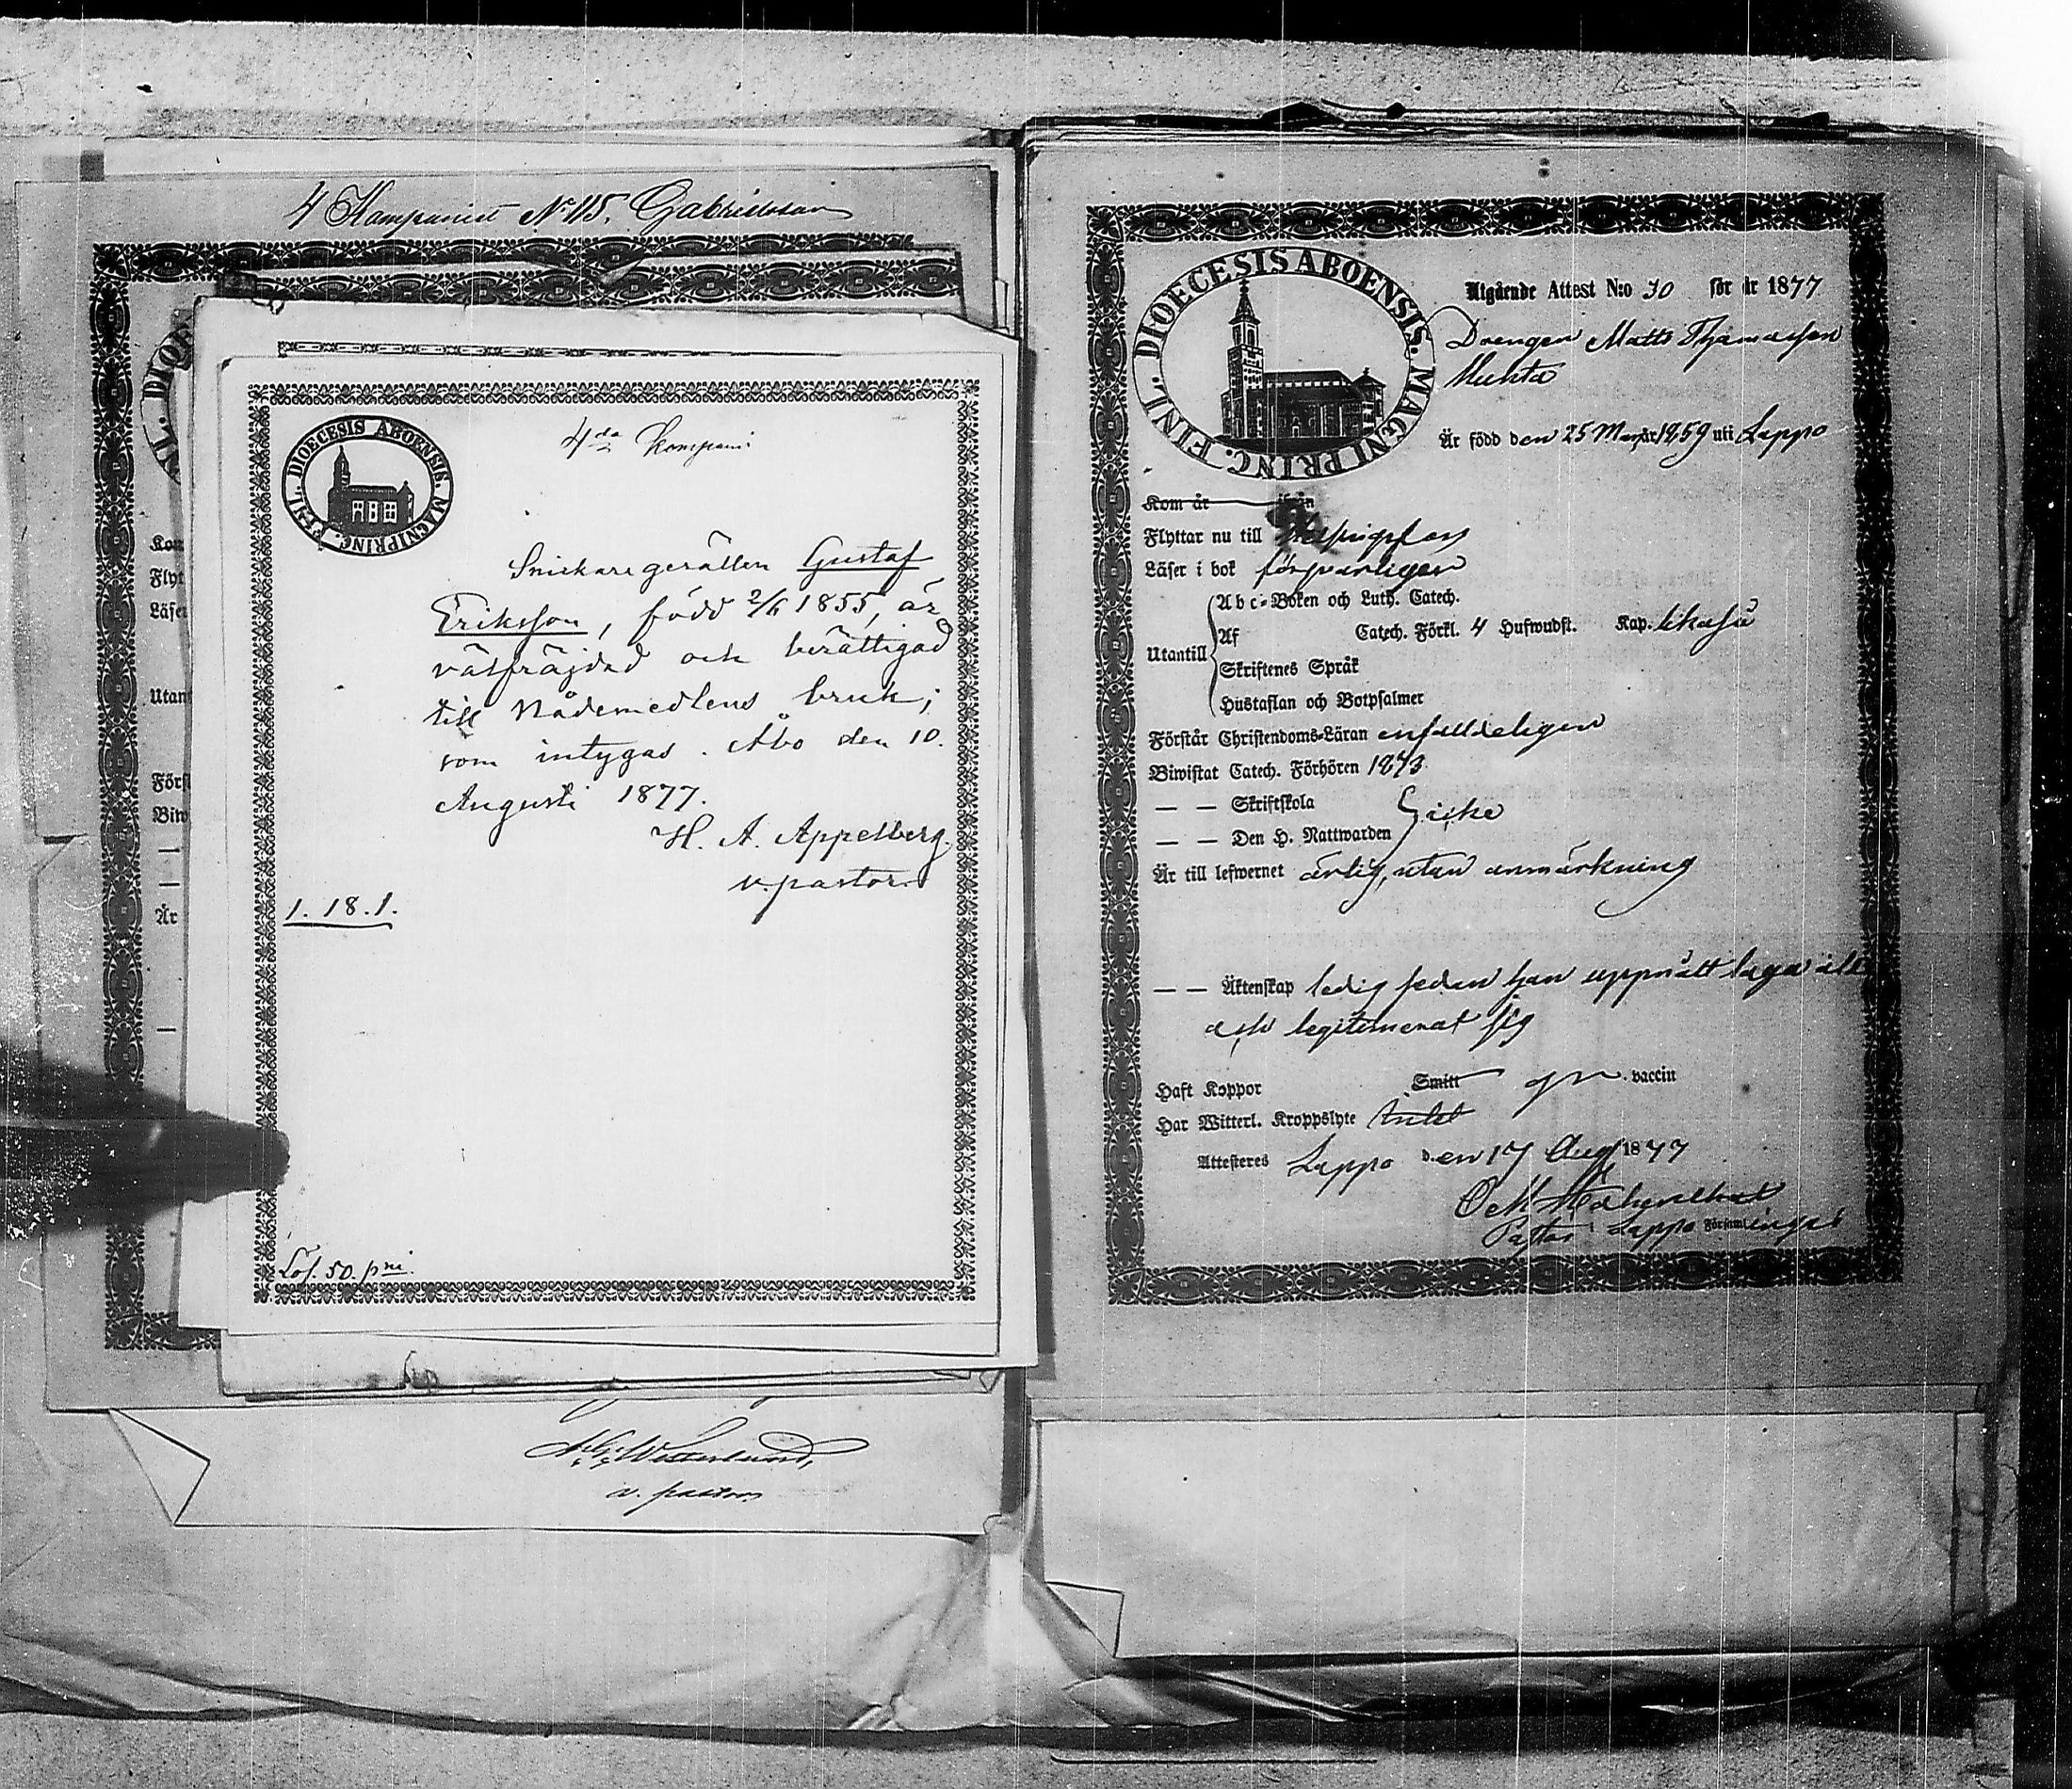 4 Kompaniet No 115. Gabrielsson
FINL. DIOECESIS ABOENSIS. MAGNI PRINC.
4da Kompani
Snickaregesällen Gustaf
Eriksson, född 2/6 1855, är
välfräjdad och berättigad
till Nådemedlens bruk;
som intygas. Åbo den 10.
Augusti 1877.
H. A. Appelberg.
v. pastor.
1. 18. 1.
Lös. 50. pni.
Westerlund,
v. pastor
Kom
Flyt
Läser
Utant
Först
Biw
Är
FINL. DIOECESIS ABOENSIS. MAGNI PRINC.
Utgående Attest N:o 30 för år 1877
Drengen Matts Thomasson
Är född den 25 Mars år 1859 uti Lappo
Kom år ifrån
Flyttar nu till
Läser i bok försvarligen
Abc-Boken och Luth. Catech.
Utantill Af Catech. Förkl. 4 Hufwudst. Kap. likaså
Skriftenes Språk
Hustaflan och Botpsalmer
Förstår Christendoms-Läran enfaldeligen
Biwistat Catech. Förhören 1873
— — Skriftskola
— — Den H. Nattwarden Icke
Är till lefwernet ärlig, utan anmärkning
— — Äktenskap ledig sedan han uppnått laga åld
och legitimerat sig
Haft Koppor Smitt vaccin
Har Witterl. Kroppslyte
Attesteres Lappo den 17 Aug 1877
Pastor i Lappo Församlings